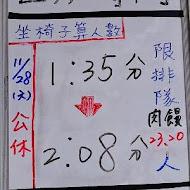 坐椅子算人數
限排隊
肉饅
23.20
人
1:35分
2:08分
11/28
(六)
公休